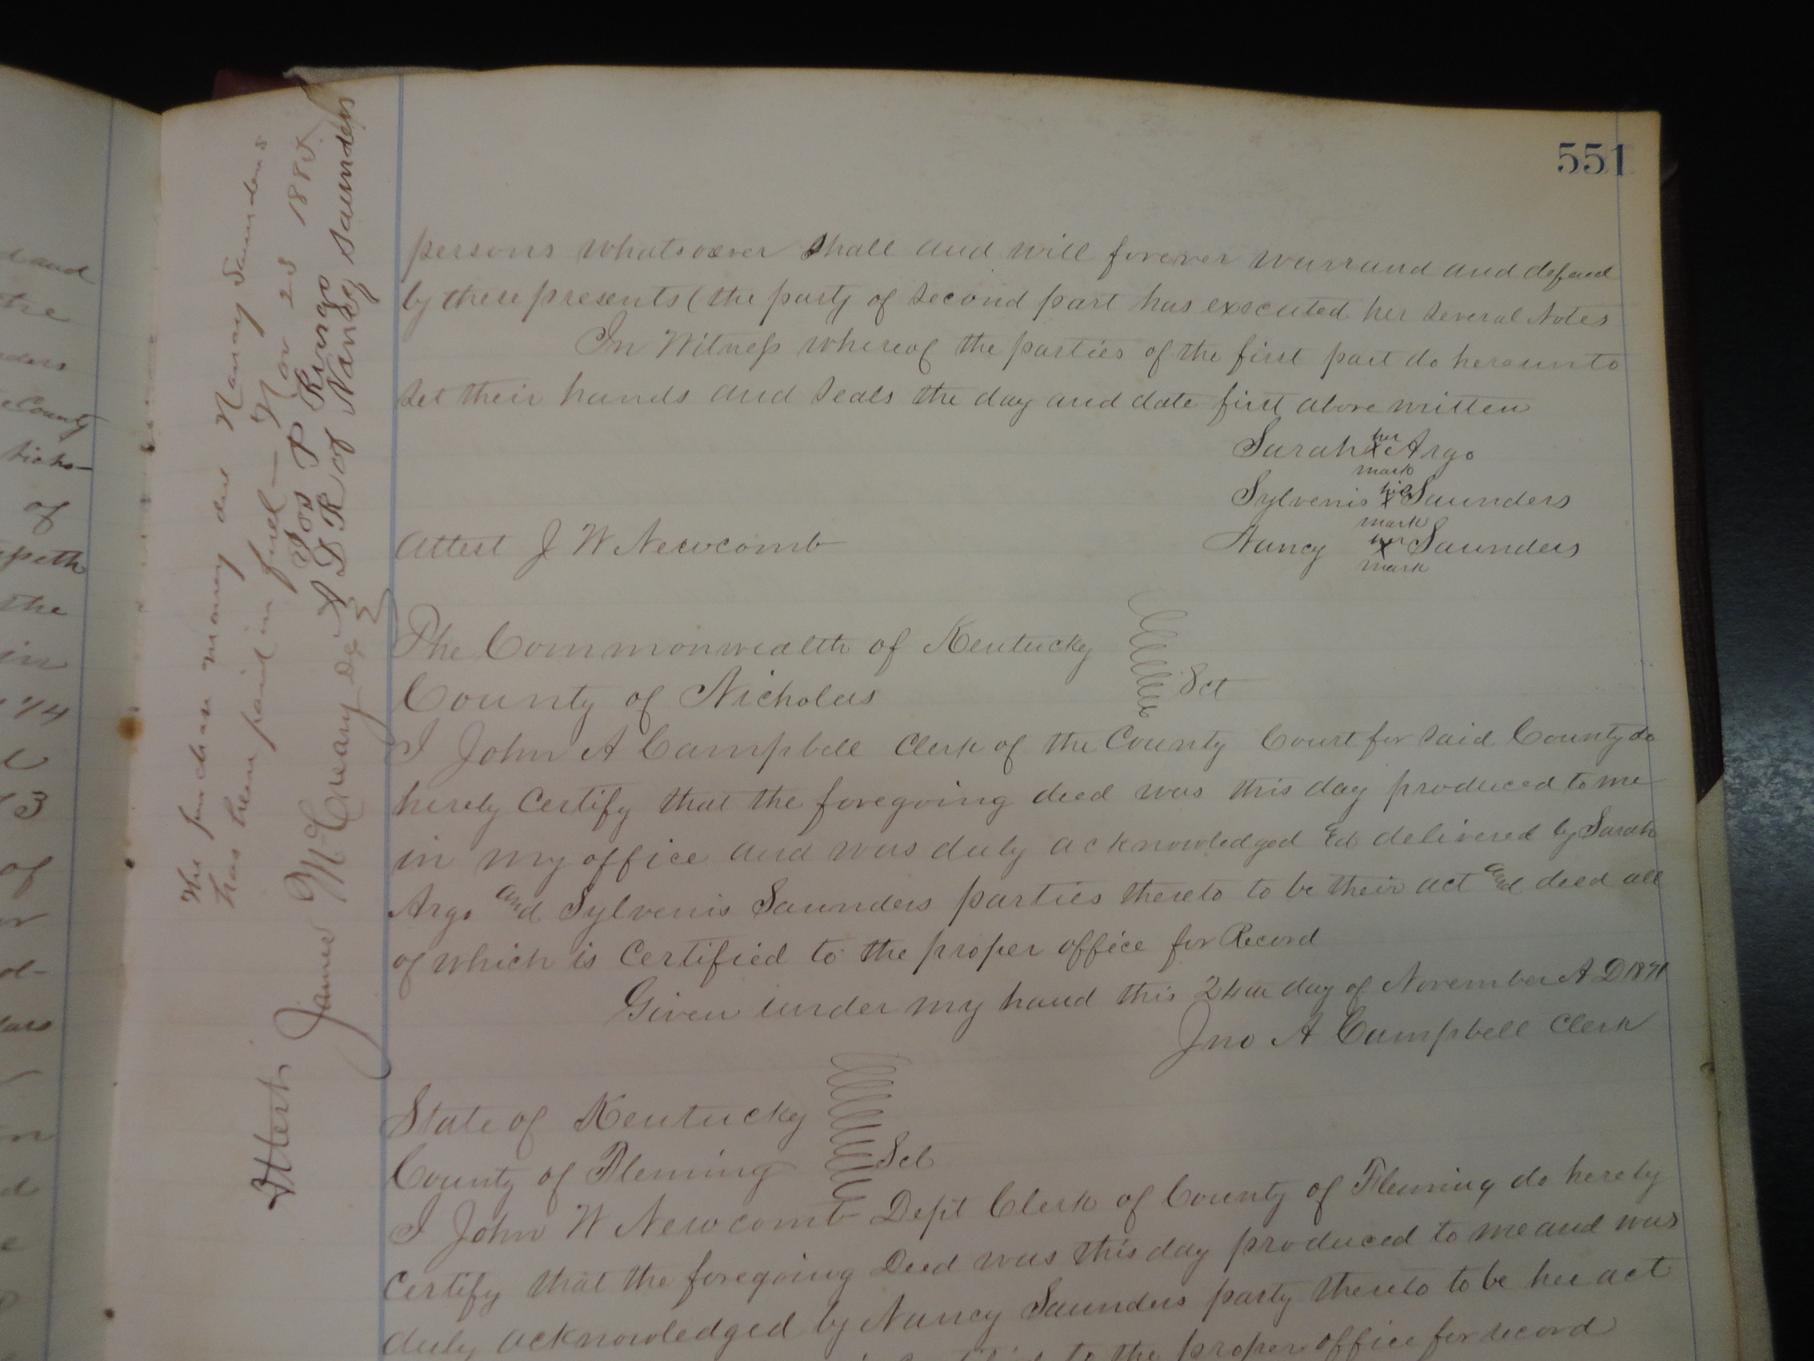 551
persons whatsoever shall and will forever warrand and defend
by these presents (the party of second part has executed her several Notes
In Witness whereof the parties of the first part do hereunto
set their hands and seals the day and date first above written
Sarah her x mark Argo
Sylvenis his x mark Saunders
Attest J W Newcomb
Nancy her x mark Saunders
The Commonwealth of Kentucky
County of Nicholas Sct
I John A Campbell Clerk of the County Court for said County do
hereby Certify that the foregoing deed was this day produced to me
in my office and was duly acknowledged &d delivered by Sarah
Argo and Sylvenis Saunders parties thereto to be their act and deed all
of which is Certified to the proper office for Record
Given under my hand this 24th day of November A D 1871
Jno A Campbell Clerk
State of Kentucky
County of Fleming Sct
I John W Newcomb Dept Clerk of County of Fleming do hereby
Certify that the foregoing Deed was this day produced to me and was
duly acknowledged by Nancy Saunders party thereto to be her act
to the proper office for record
The purchase money due Nancy Saunders
has been paid in full — Nov 23 188
Jos P Ringo
A D R of Nancy Saunders
Attest James McCreary
and
the
County
of
the
in
174
73
of